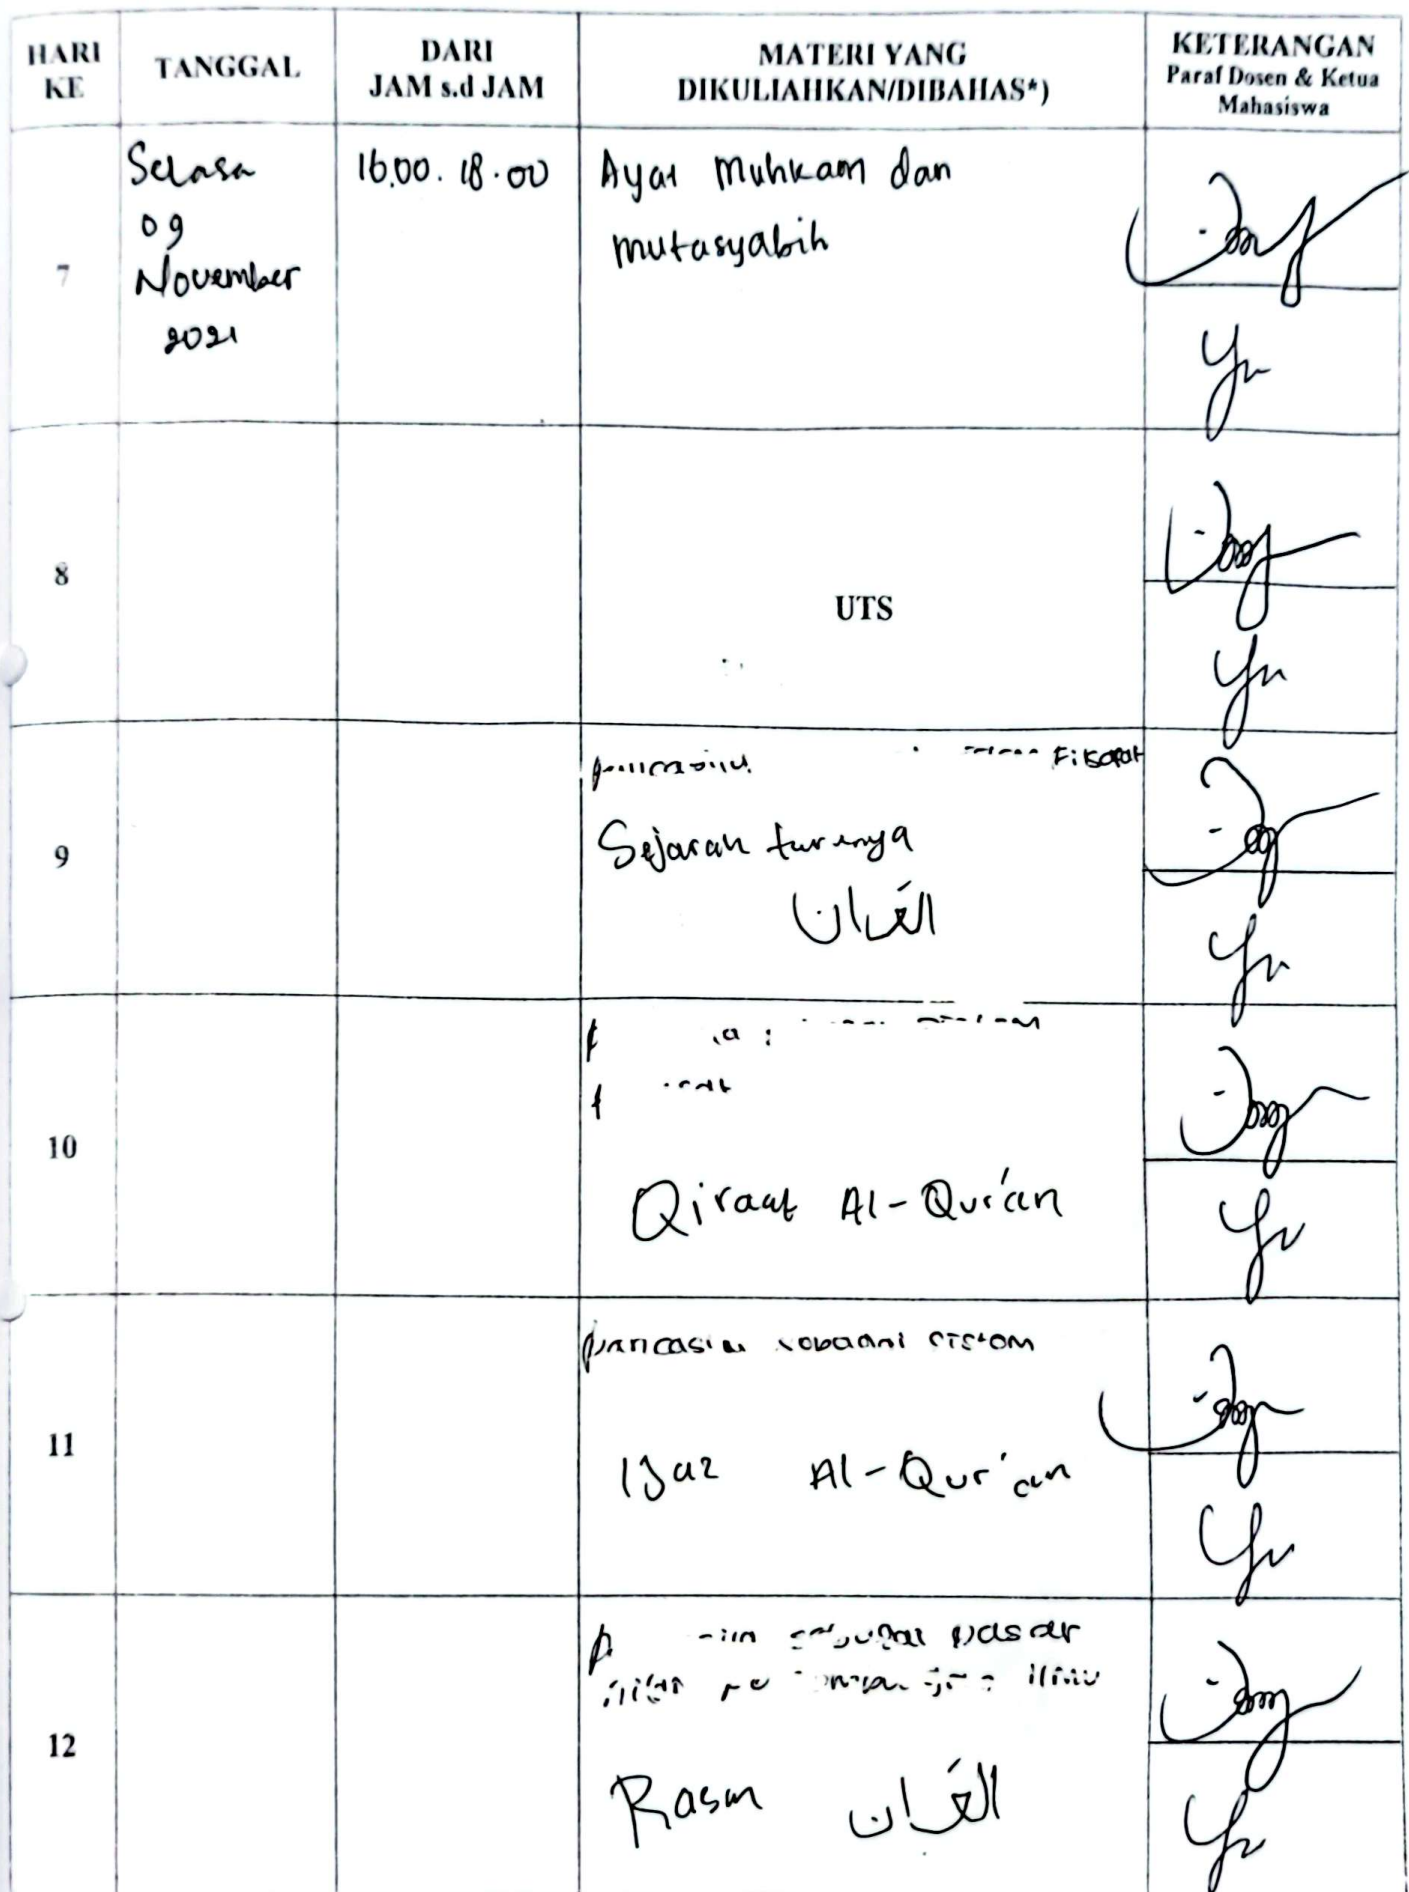 HARI KE
TANGGAL
DARI JAM s.d JAM
MATERI YANG DIKULIAHKAN/DIBAHAS*)
KETERANGAN
Paraf Dosen & Ketua Mahasiswa
7
Selasa
09
November
2021
16.00. 18.00
Ayat Muhkam dan
mutasyabih
8
UTS
9
Filsafat
Sejarah
القران
10
Qiraat Al-Qur'an
11
Ijaz Al-Qur'an
12
Dasar
ilmu
Rasm القران